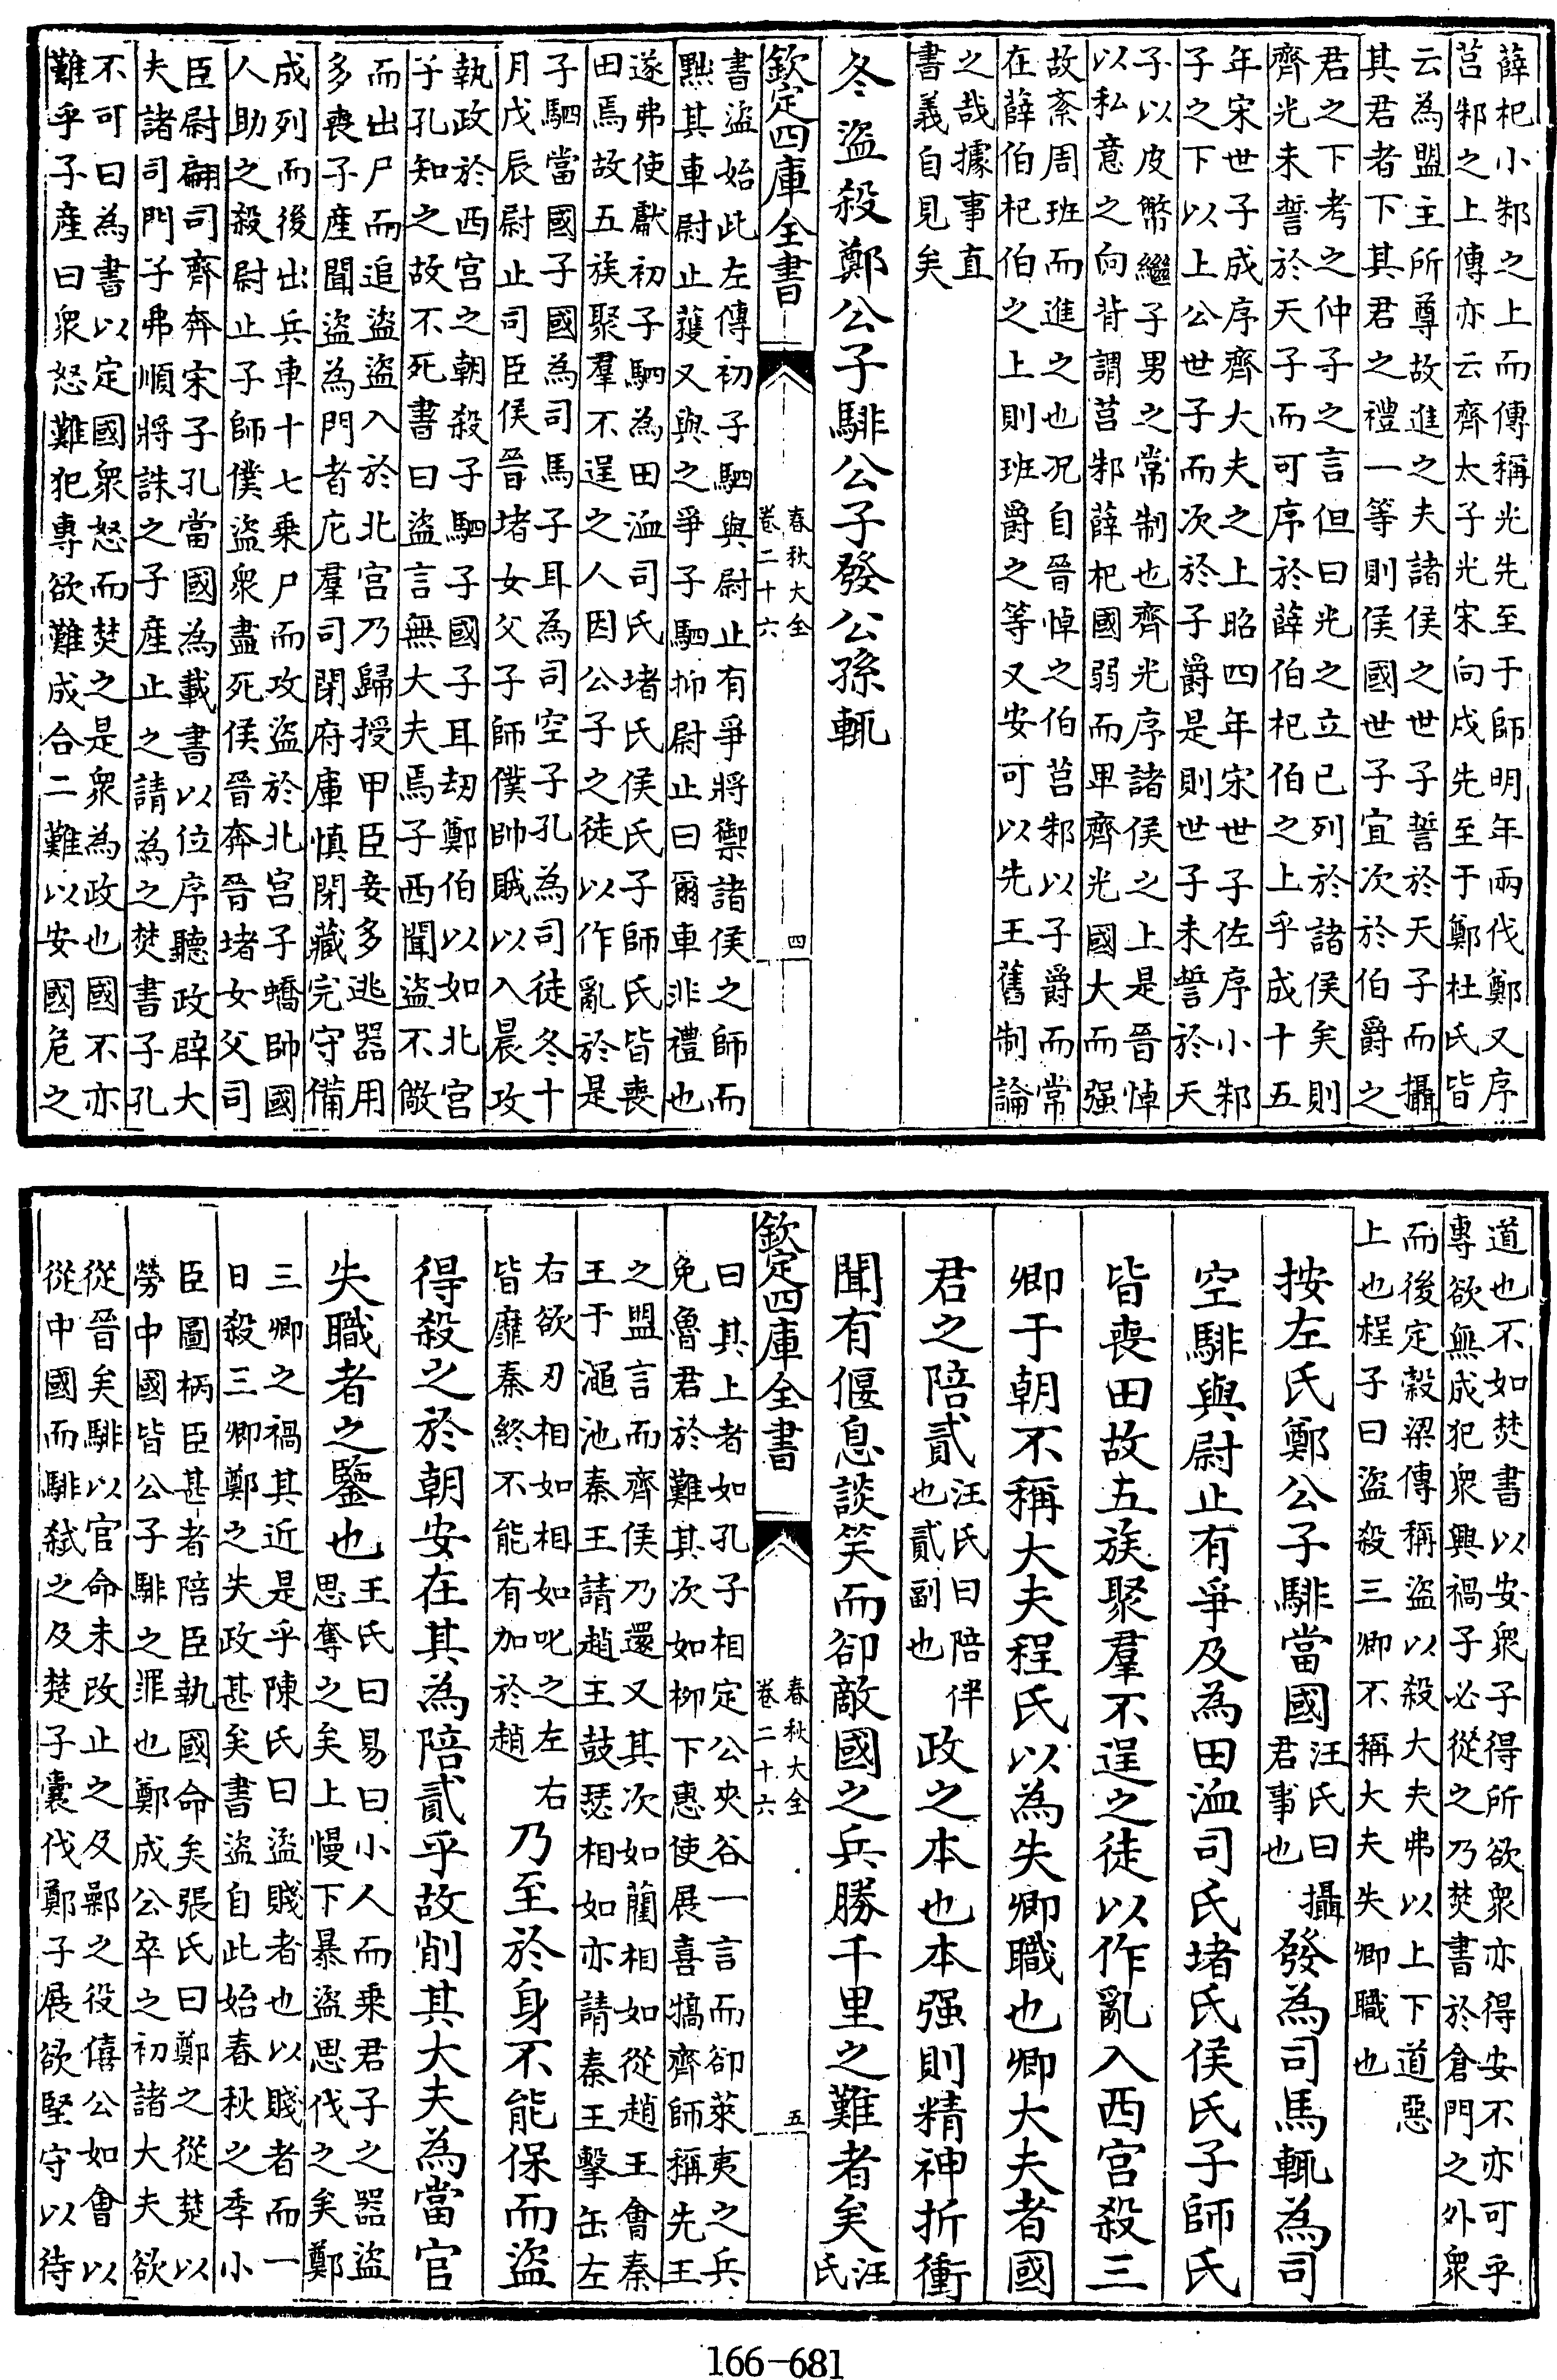 薛杞小邾之上而傳稱光先至于師明年兩伐鄭又序
莒邾之上傳亦云齊太子光宋向戌先至于鄭杜氏皆
云為盟主所尊故進之夫諸侯之世子誓於天子而攝
其君者下其君之禮一等則侯國世子宜次於伯爵之
君之下考之仲子之言但曰光之立已列於諸侯矣則
齊光未誓於天子而可序於薛伯杞伯之上乎成十五
年宋世子成序齊大夫之上昭四年宋世子佐序小邾
子之下以上公世子而次於子爵是則世子未誓於天
子以皮幣繼子男之常制也齊光序諸侯之上是晉悼
以私意之向背謂莒邾薛杞國弱而卑齊光國大而强
故紊周班而進之也况自晉悼之伯莒邾以子爵而常
在薛伯杞伯之上則班爵之等又安可以先王舊制論
之哉據事直
書義自見矣
冬盜殺鄭公子騑公子發公孫輒
欽定四庫全書
春秋大全
卷二十六
四
書盜始此左傳初子駟與尉止有爭將禦諸侯之師而
黜其車尉止獲又與之爭子駟抑尉止曰爾車非禮也
遂弗使獻初子駟為田洫司氏堵氏侯氏子師氏皆喪
田焉故五族聚羣不逞之人因公子之徒以作亂於是
子駟當國子國為司馬子耳為司空子孔為司徒冬十
月戊辰尉止司臣侯晉堵女父子師僕帥賊以入晨攻
執政於西宮之朝殺子駟子國子耳劫鄭伯以如北宮
子孔知之故不死書曰盜言無大夫焉子西聞盜不儆
而出尸而追盜盜入於北宮乃歸授甲臣妾多逃器用
多喪子產聞盜為門者庀羣司閉府庫慎閉藏完守備
成列而後出兵車十七乗尸而攻盜於北宮子蟜帥國
人助之殺尉止子師僕盜衆盡死侯晉奔晉堵女父司
臣尉翩司齊奔宋子孔當國為載書以位序聽政辟大
夫諸司門子弗順將誅之子產止之請為之焚書子孔
不可曰為書以定國衆怒而焚之是衆為政也國不亦
難乎子產曰衆怒難犯專欲難成合二難以安國危之
道也不如焚書以安衆子得所欲衆亦得安不亦可乎
專欲無成犯衆興禍子必從之乃焚書於倉門之外衆
而後定穀梁傳稱盜以殺大夫弗以上下道惡
上也程子曰盜殺三卿不稱大夫失卿職也
按左氏鄭公子騑當國汪氏曰攝君事也發為司馬輒為司
空騑與尉止有爭及為田洫司氏堵氏侯氏子師氏
皆喪田故五族聚羣不逞之徒以作亂入西宮殺三
卿于朝不稱大夫程氏以為失卿職也卿大夫者國
君之陪貳汪氏曰陪伴也貳副也政之本也本强則精神折衝
聞有偃息談笑而卻敵國之兵勝千里之難者矣汪氏
欽定四庫全書
春秋大全
卷二十六
五
曰其上者如孔子相定公夾谷一言而卻萊夷之兵
免魯君於難其次如柳下惠使展喜犒齊師稱先王
之盟言而齊侯乃還又其次如藺相如從趙王會秦
王于澠池秦王請趙王鼓瑟相如亦請秦王擊缶左
右欲刃相如相如叱之左右
皆靡秦終不能有加於趙
乃至於身不能保而盜
得殺之於朝安在其為陪貳乎故削其大夫為當官
失職者之鑒也王氏曰易曰小人而乗君子之器盜
思奪之矣上慢下暴盜思伐之矣鄭
三卿之禍其近是乎陳氏曰盜賤者也以賤者而一
日殺三卿鄭之失政甚矣書盜自此始春秋之季小
臣圖柄臣甚者陪臣執國命矣張氏曰鄭之從楚以
勞中國皆公子騑之罪也鄭成公卒之初諸大夫欲
從晉矣騑以官命未改止之及鄵之役僖公如會以
從中國而騑弑之及楚子囊伐鄭子展欲堅守以待
166-681